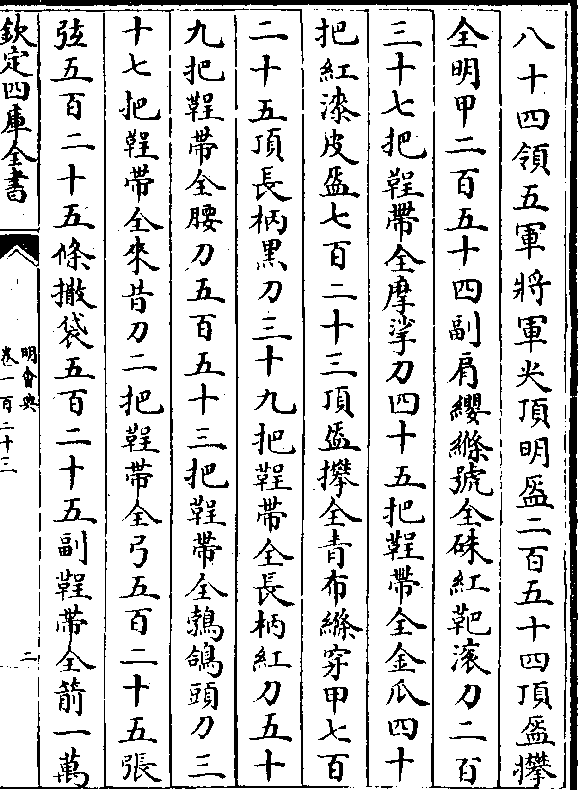 八十四領五軍將軍尖頂明盔二百五十四頂盔攀
全明甲二百五十四副肩纓縧號全硃紅靶滚刀二百
三十七把鞓帶全摩挲刀四十五把鞓帶全金瓜四十
把紅漆皮盔七百二十三頂盔攀全青布縧穿甲七百
二十五頂長柄黒刀三十九把鞓帶全長柄紅刀五十
九把鞓帶全腰刀五百五十三把鞓帶全鵓鴿頭刀三
十七把鞓帶全來昔刀二把鞓帶全弓五百二十五張
弦五百二十五條撒袋五百二十五副鞓帶全箭一萬
欽定四庫全書
明會典
卷一百二十三
二